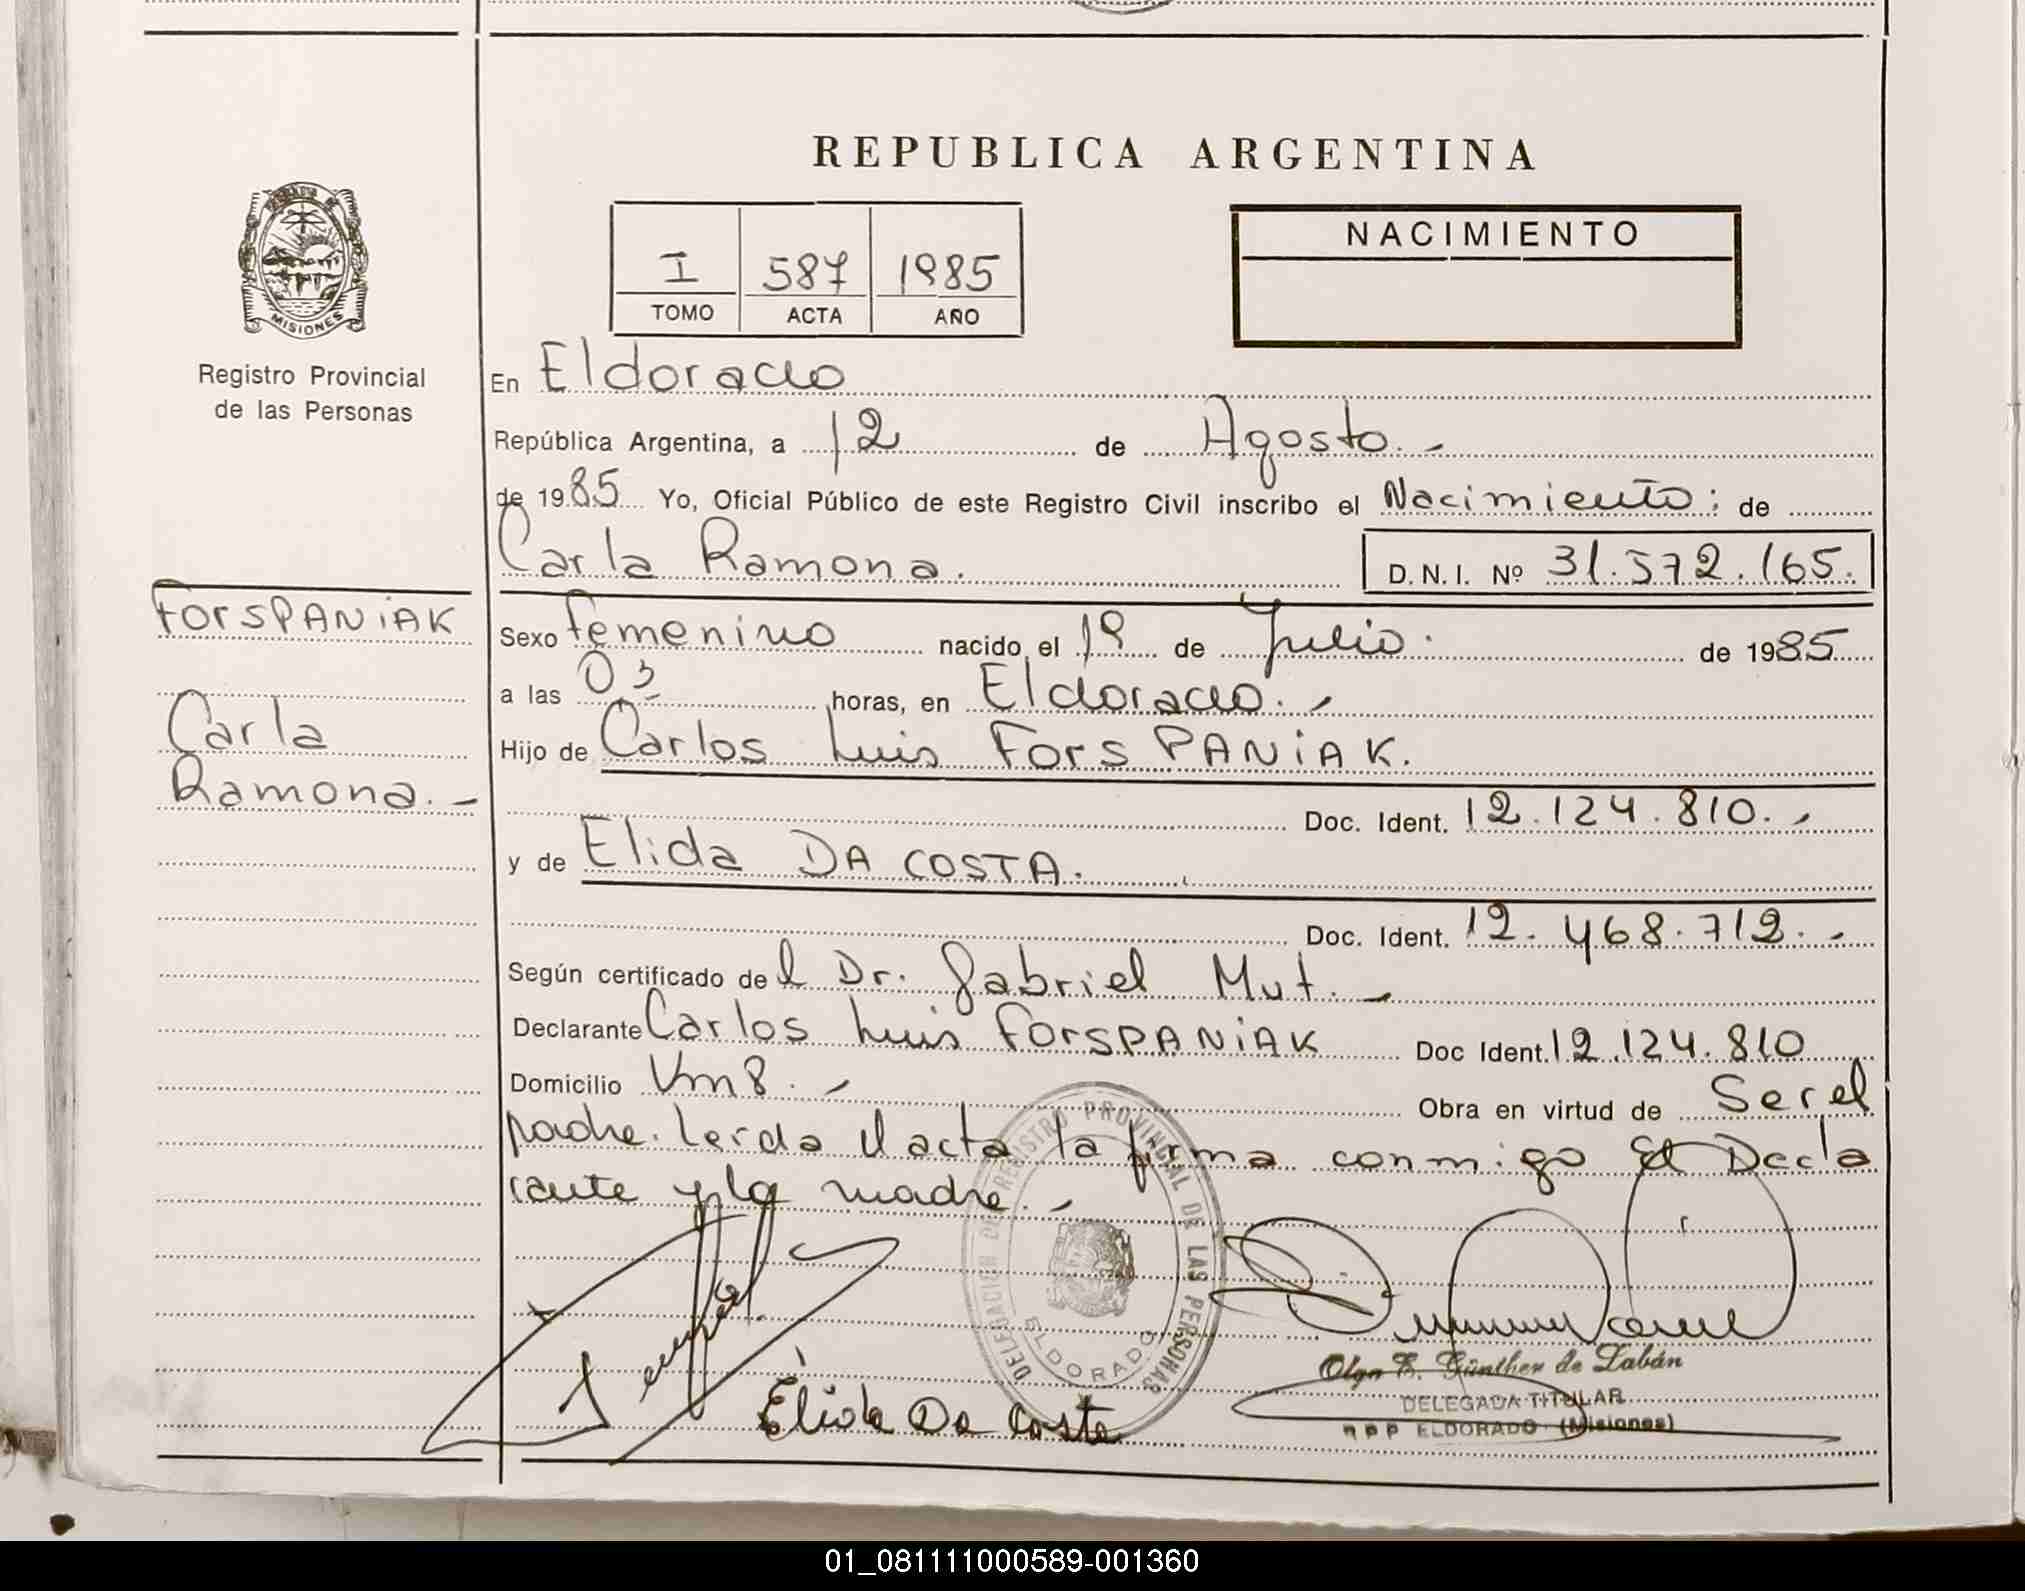 REPUBLICA ARGENTINA
I 587 1985
TOMO ACTA AÑO
NACIMIENTO
MISIONES
Registro Provincial
de las Personas
En Eldorado
República Argentina, a 12 de Agosto.-
de 1985 Yo, Oficial Público de este Registro Civil inscribo el Nacimiento: de
Carla Ramona. D.N.I. Nº 31.572.165.
FORSPANiAK
Carla
Ramona.-
Sexo femenino nacido el 19 de Julio. de 1985
a las 03 horas, en Eldorado.-
Hijo de Carlos Luis FORSPANiAK.
Doc. Ident. 12.124.810.-
y de Elida DA COSTA.
Doc. Ident. 12.468.712.-
Según certificado del Dr. Gabriel Mut.-
Declarante Carlos Luis FORSPANiAK Doc Ident. 12.124.810
Domicilio Km8.- Obra en virtud de Ser el
padre. Leida el acta la firma conmigo El Decla
rante y la madre.-
DELEGACION DEL REGISTRO PROVINCIAL DE LAS PERSONAS
ELDORADO
Elida Da Costa
Olga E. Günther de Labán
DELEGADA TITULAR
RPP ELDORADO (Misiones)
01_081111000589-001360